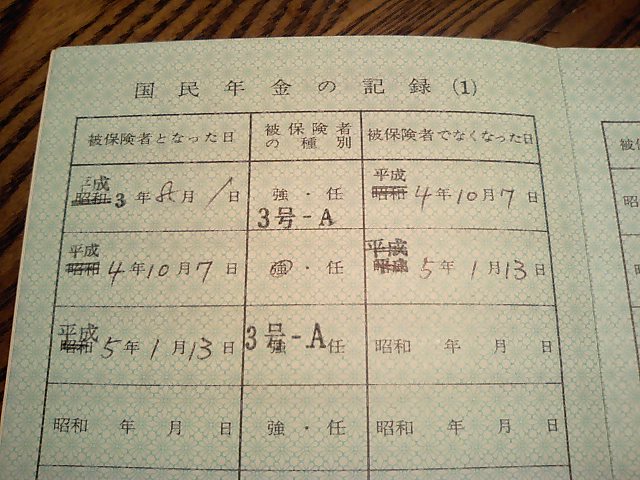 国民年金の記録(1)
被保険者となった日 被保険者の種別 被保険者でなくなった日
平成 昭和 3年8月1日 強・任 3号-A 平成 昭和 4年10月7日
平成 昭和 4年10月7日 強・任 平成 昭和 5年1月13日
平成 昭和 5年1月13日 強 任 3号-A 昭和 年 月 日
昭和 年 月 日 強・任 昭和 年 月 日